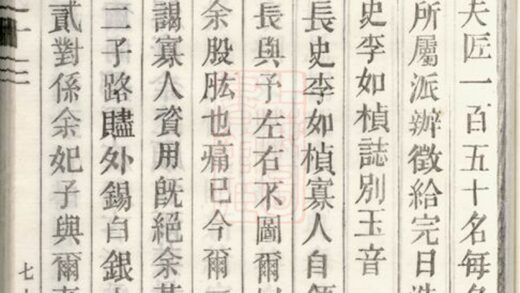 夫匠一百五十名每
所屬派辦徵給完日造
史李如楨誌別玉音
長史李如楨寡人自
長與予左右不圖爾
余股肱也痛已今爾
謁寡人資用旣絕余
二子路贐外錫白銀
貳對係余妃子與爾
七